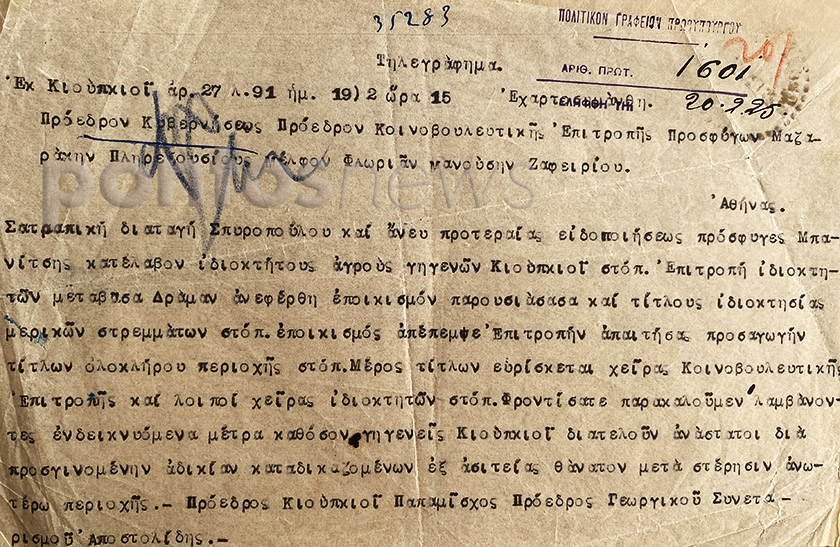 35283
ΠΟΛΙΤΙΚΟΝ ΓΡΑΦΕΙΟΝ ΠΡΩΘΥΠΟΥΡΓΟΥ
201
Τηλεγράφημα.
ΑΡΙΘ. ΠΡΩΤ. 1601
Ἐκ Κιοὺπκιοϊ ἀρ. 27 λ.91 ἡμ. 19)2 ὥρα 15 Ἐχαρτεσημάνθη.
20.2.25
Πρόεδρον Κυβερνήσεως Πρόεδρον Κοινοβουλευτικῆς Ἐπιτροπῆς Προσφύγων Μαζα-
ράκην Πληρεξουσίους Δέλφον Φλωριᾶν μανούσην Ζαφειρίου.
pontosnews
Ἀθήνας.
Σατραπικῆ διαταγῆ Σπυροπούλου καί ἄνευ προτεραίας εἰδοποιήσεως πρόσφυγες Μπα-
νίτσης κατέλαβον ἰδιοκτήτους ἀγρούς γηγενῶν Κιοὺπκιοϊ στόπ. Ἐπιτροπή ἰδιοκτη-
τῶν μεταβᾶσα Δράμαν ἀνεφέρθη ἐποικισμόν παρουσιάσασα καί τίτλους ἰδιοκτησίας
μερικῶν στρεμμάτων στόπ. ἐποικισμός ἀπέπεμψε Ἐπιτροπήν ἀπαιτήσας προσαγωγήν
τίτλων ὁλοκλήρου περιοχῆς στόπ. Μέρος τίτλων εὑρίσκεται χεῖρας Κοινοβουλευτικῆς
Ἐπιτροπῆς καί λοιποί χεῖρας ἰδιοκτητῶν στόπ. Φροντίσατε παρακαλοῦμεν λαμβάνον-
τες ἐνδεικνυόμενα μέτρα καθόσον γηγενεῖς Κιοὺπκιοϊ διατελοῦν ἀνάστατοι διά
προσγινομένην ἀδικίαν καταδικαζομένων ἐξ ἀσιτείας θάνατον μετά στέρησιν ἀνω-
τέρω περιοχῆς.— Πρόεδρος Κιοὺπκιοϊ Παπαμῖσχος Πρόεδρος Γεωργικοῦ Συνετα-
ρισμοῦ Ἀποστολίδης.—